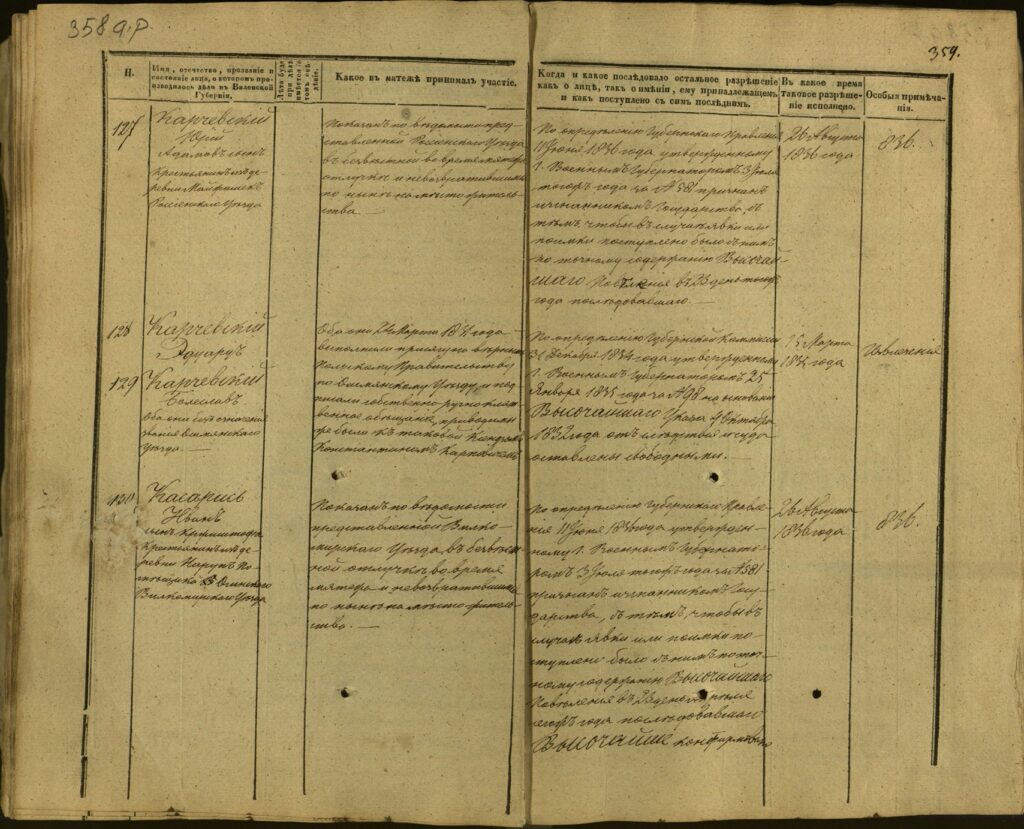 358 а.р.
359.
Н.
Имя, отечество, прозваніе и
состояніе лица, о которомъ про-
изводилось дѣло въ Виленской
Губерніи.
Какое въ матежѣ принималъ участіе.
Когда и какое послѣдовало остальное разрѣшеніе
какъ о лицѣ, такъ о имѣніи, ему принадлежащемъ
и как поступлено съ симъ послѣднимъ.
Въ какое время
таковое разрѣше-
ніе исполнено.
Особыя примѣча-
нія.
127
Карчевскій
Юрій
Адамовъ сынъ
Крестьянинъ де-
ревни
Россіенскаго уѣзда
Показанъ по вѣдомости пред-
ставленной Россіенскаго Уѣзда
въ безвѣстной во время мятежа
отлучкѣ и невозвратившимся
по нынѣ на мѣсто житель-
ства.
По опредѣленію Губернскаго Правленія
11 Іюня 1836 года утвержденному
Г. Военнымъ Губернаторомъ 3 Іюля
тогожъ года за № 581 признанъ
изгнанникомъ Государства, съ
тѣмъ, чтобы въ случаѣ явки или
поимки поступлено было съ нимъ
по точному содержанію Высочай-
шаго Повелѣнія въ 23 день тогожъ
года послѣдовавшаго.
26 Августа
1836 года
836.
128
Карчевскій
Эдуардъ
129
Карчевскій
Болеславъ
Оба они безъ означенія
званія Вилкмянскаго
уѣзда.
Оба они 24 Марта 1831 года
выполнили присягу
Польскому Правительству
по Уѣзду и под-
писали собственно-ручно клят-
венное обѣщаніе, приводимы
же были къ таковой Ксендзомъ
Константиномъ Карповичемъ
По опредѣленію Губернской Коммисіи
31 Декабря 1834 года утвержденному
Г. Военнымъ Губернаторомъ 25
Января 1835 года за № 98 на основаніи
Высочайшаго Указа 4 Октября
1832 года отъ слѣдствія и суда
оставлены свободными.
15 Марта
1835 года
130
Касарисъ
Иванъ
сынъ Криштофа
Крестьянинъ де-
ревни По-
мѣщика
Вилкомирскаго Уѣзда
Показанъ по вѣдомости
представленной Вилко-
мирскаго Уѣзда, въ безвѣст-
ной отлучкѣ во время
мятежа и невозвратившимся
по нынѣ на мѣсто житель-
ства.
По опредѣленію Губернскаго Правле-
нія 11 Іюня 1836 года утвержден-
ному Г. Военнымъ Губернато-
ромъ 3 Іюля тогожъ года за № 581
признанъ изгнанникомъ Госу-
дарства, съ тѣмъ, чтобы въ
случаѣ явки или поимки по-
ступлено было съ нимъ по точ-
ному содержанію Высочайшаго
Повелѣнія въ 23 день
года послѣдовавшаго
Высочайше конфирмовано
26 Августа
1836 года
836.